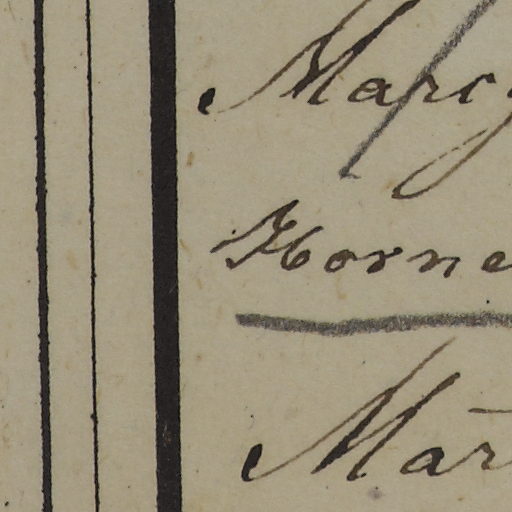 Marcy
Horne
Mar